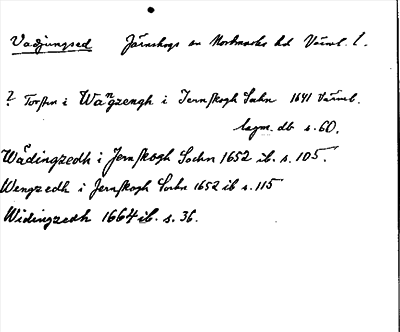 Vadjungsed Järnskogs sn Nordmarks hd Värml. l.
? Torsten i Wangzengh i Jernskogh Sochn 1641 Värml.
lagm. db s. 60.
Wådingzedh i Jernskogh Sochn 1652 ib. s. 105.
Wengzedh i Jernskogh Sochn 1652 ib s. 115
Widingzedh 1664 ib. s. 36.